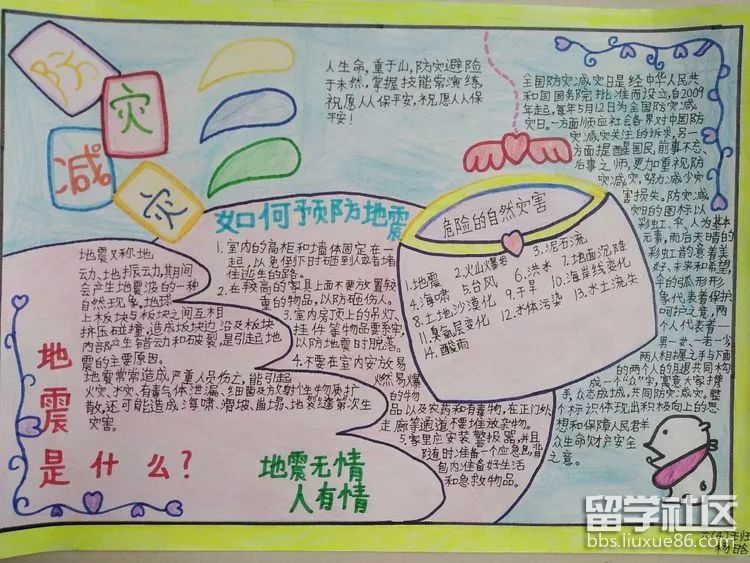 防
灾
减
灾
人生命,重于山,防灾避险
于未然,掌握技能常演练,
祝愿人人保平安,祝愿人人保
平安!
全国防灾减灾日是经中华人民共
和国国务院批准而设立,自2009
年起,每年5月12日为全国防灾减
灾日。一方面顺应社会各界对中国防
灾减灾关注的诉求,另一
方面提醒国民,前事不忘、
后事之师,更加重视防
灾减灾,努力减少灾
害损失。防灾减
灾日的图标以
彩虹、伞、人为基本
元素,雨后天晴的
彩虹首的意着美
好、未来和希望,
伞的弧形形
象代表者保护、
呵护之意,两
个人代表着一
男一女、一老一少
两人相握之手与下面
的两个人的腿共同构
成一个“众”字,寓意大家携
手,众志成城,共同防灾减灾,整
个标识体现出积极向上的思
想和保障人民群
众生命财产安全
之意。
如何预防地震
1.室内的高柜和墙体固定在一
起,以免倒下时砸到人或者堵
住逃生的路。
2.在较高的家具上面不要放置较
重的物品,以防砸伤人。
3.室内房顶上的吊灯,
挂件等物品要系牢,
以防地震时脱落。
4.不要在室内安放易
燃易爆
的物
品以及农药和有毒物,在正门处
走廊等通道不要堆放杂物。
5.家里应安装警报器,并且
随时准备一个应急包,背
包内准备好生活
和急救物品。
危险的自然灾害
1.地震 2.火山爆发 3.泥石流
4.海啸 5.台风 6.洪水 7.地面沉降
8.土地沙漠化 9.干旱 10.海岸线变化
11.臭氧层变化 12.水体污染 13.水土流失
14.酸雨
地震又称地
动、地振动,期间
会产生地震波的一种
自然现象,地球
上木板块与板块之间互相
挤压碰撞,造成板块边沿及板块
内部产生错动和破裂,是引起地
震的主要原因。
地震常常造成严重人员伤亡,能引起
火灾、水灾、有毒气体泄漏、细菌及放射性生物质扩
散,还可能造成海啸、滑坡、崩塌、地裂缝等次生
灾害。
地震是什么?
地震无情
人有情
六(4)班
留学社区
bbs.liuxue86.com